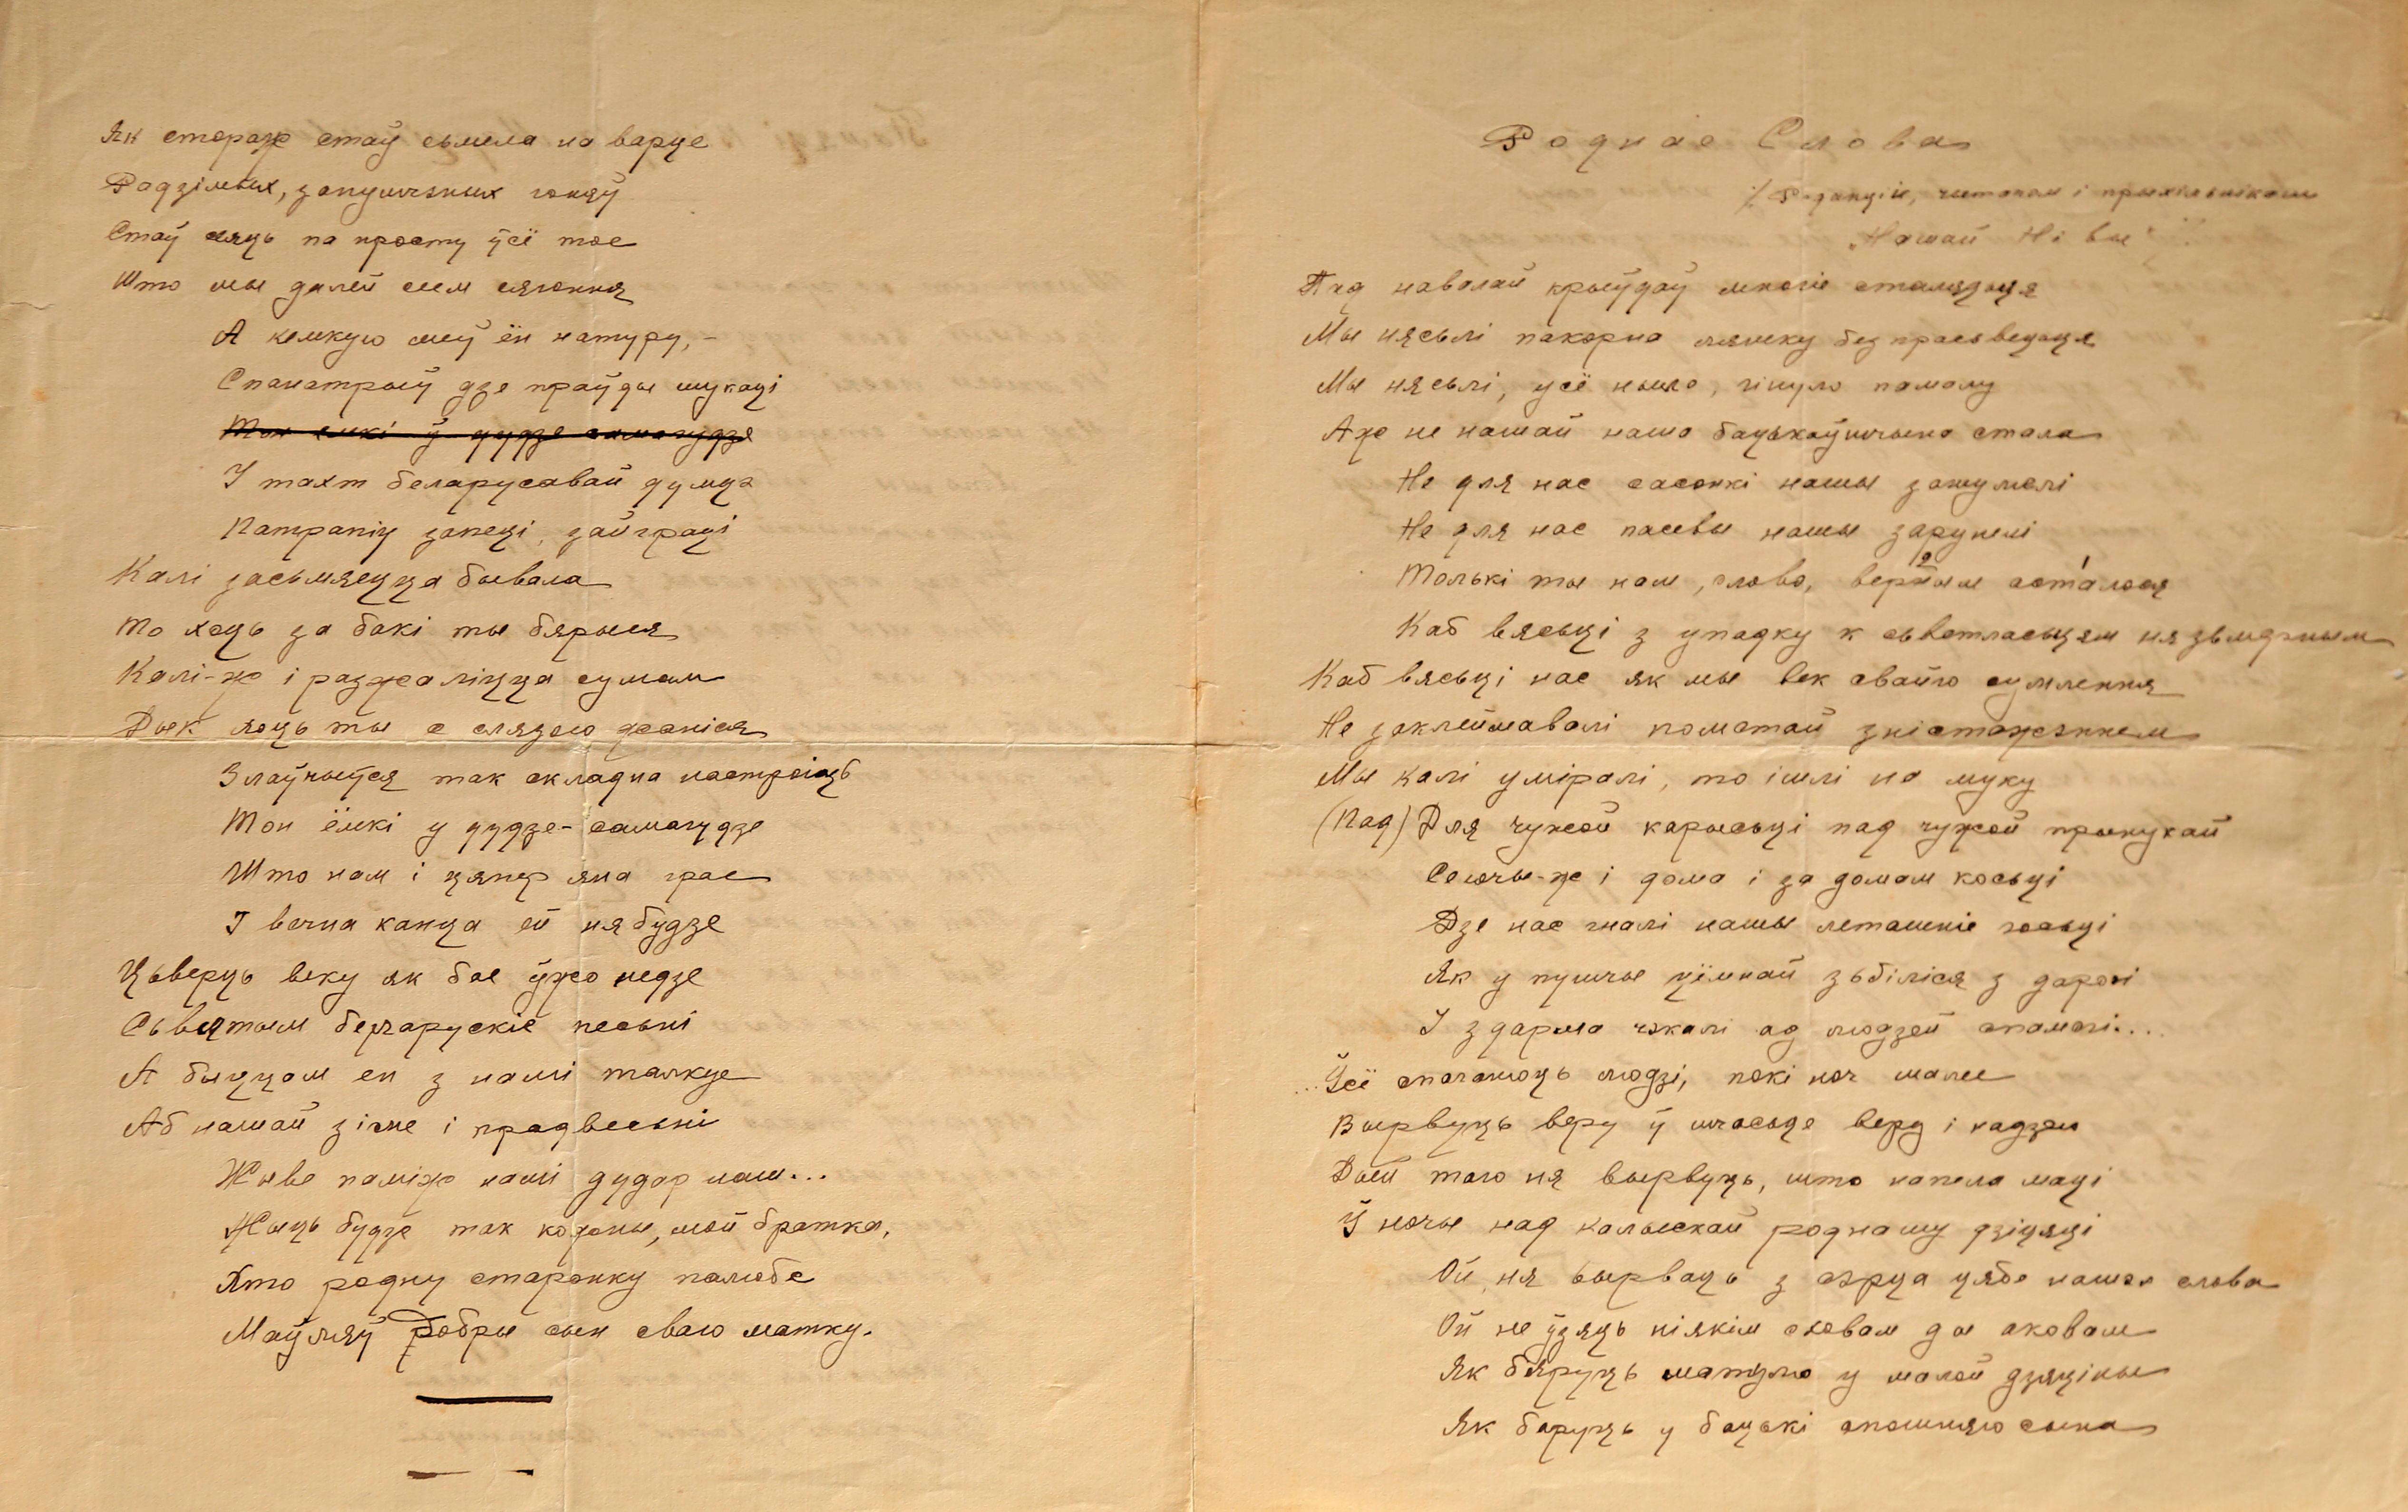 Як стораж стаў сьмела на варце
Радзімых, запушчэных гоняў
Стаў пяць па просту ўсё тое
Што мы далей сеем сягоння
А кемкую меў ён натуру, -
Спанатрыў дзе праўды шукаці
Тон ёмкі ў дудзе самагудзе
І тахт беларусавай думцэ
Патрапіў запеці, зайграці
Калі засьмяецца бывала
То хоць за бакі ты бярыся
Калі-ж і разжаліцца сумам
Дык хоць ты с слязою жаніся
Злаўчыўся так складна настроіць
Тон ёмкі у дудзе-самагудзе
Што нам і цяпер яна грае
І вечна канца ей ня будзе
Цьверць веку як бае ўжо недзе
Сьвятым беларускіе песьні
А быццам ен з намі талкуе
Аб нашай зіме і прадвесьні
Жыве паміж намі дудар наш...
Жыць будзе так кожны, мой братка,
Хто родну старонку палюбе
Маўляў добры сын сваю матку.
Роднае Слова
/ Рэдакціи, чытачом і прыхільнікам
„Нашай Нівы"
Пад навалай крыўдаў многіе сталецьця
Мы нясьлі пакорна лямку безпрасьвецьця
Мы нясьлі, усё ныло, гінуло памалу
Аже не нашай наша бацькаўшчына стала
Не для нас сасонкі нашы зашумелі
Не для нас пасевы нашы зарунелі
Толькі ты нам, слово, верным асталося
Каб вясьці з упадку к сьветласьцям нязьмерным
Каб вясьці нас як мы век свайго сумлення
Не заклеймавалі помстай зністажэннем
Мы калі уміралі, то ішлі на муку
(Пад) Для чужой карысьці пад чужой прынукай
Сеючы-ж і дома і за домам косьці
Дзе нас гналі нашы леташніе госьці
Як у пушчы цёмнай зьбіліся з дарогі
І здарма чэкалі ад людзей спамогі...
...Ўсё спаганюць людзі, покі ноч малее
Вырвуць веру ў шчасьце веру і надзею
Дый таго ня вырвуць, што напела маці
Ў ночы над калыскай роднаму дзіцяці
Ой, ня вырваць з сэрца цябе нашэ слова
Ой не ўзяць ніякім сховам ды аковам
Як бяруць матулю у малой дзяціны
Як бяруць у бацькі апошняго сына